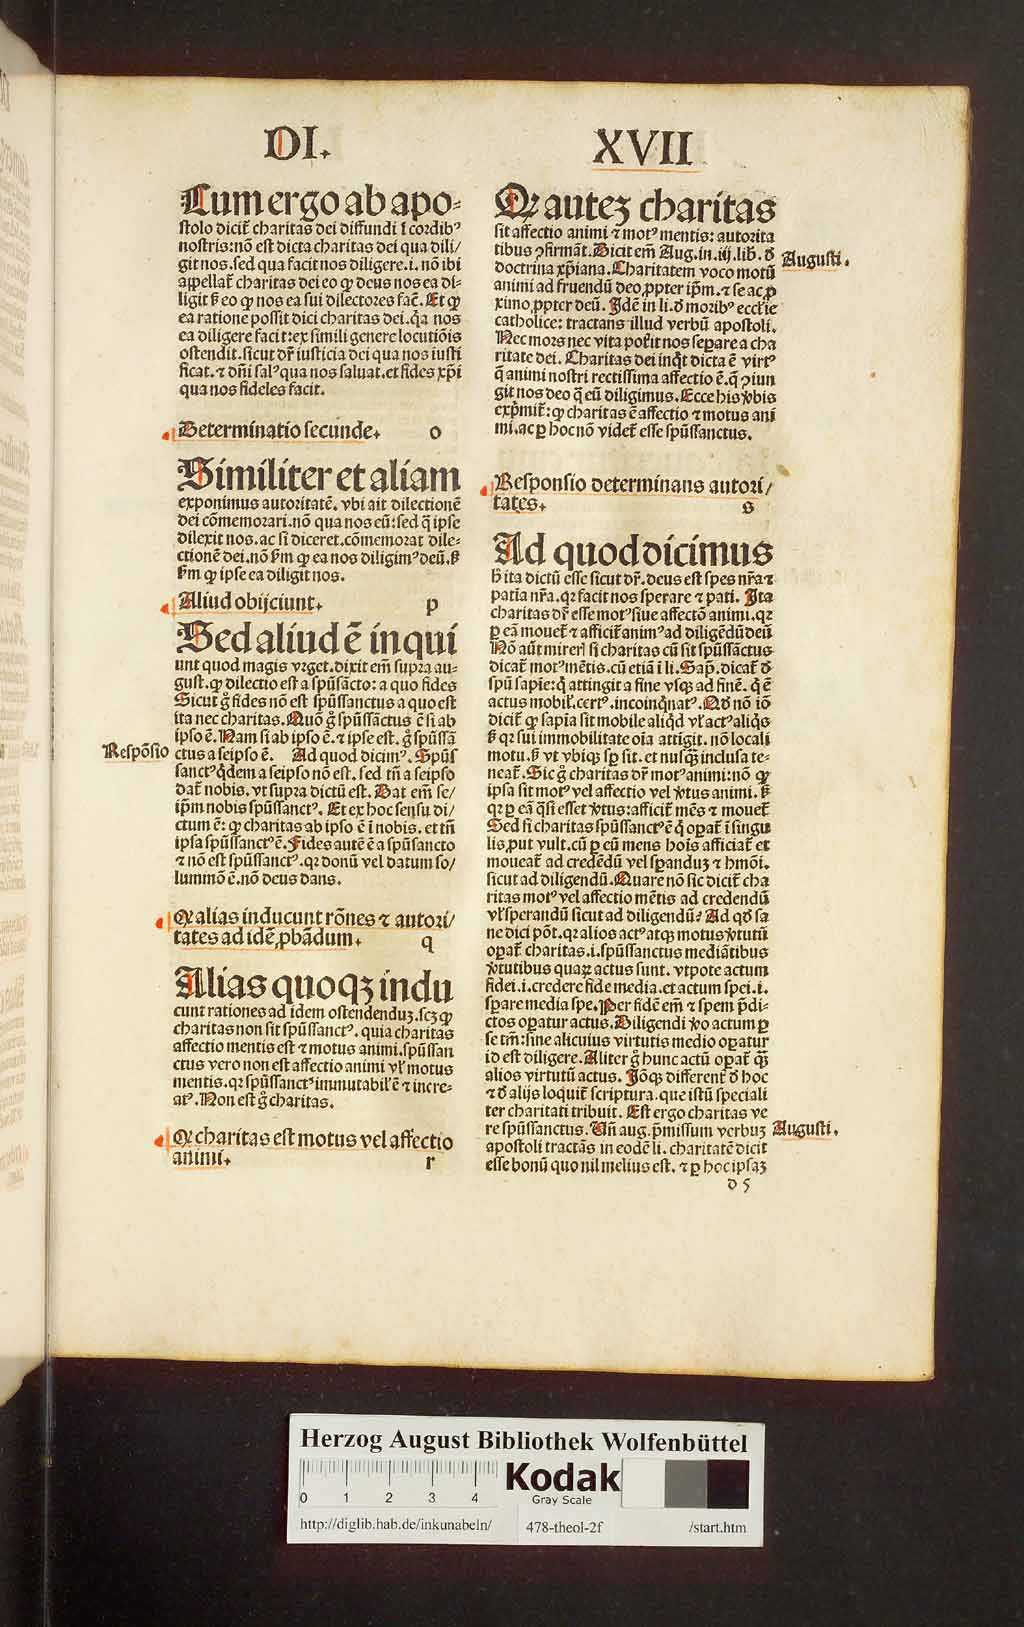 DI.
XVII
Cum ergo ab apo-
stolo dicit̄ charitas dei diffundi ī cordib⁹
nostris: nō est dicta charitas dei qua dili/
git nos. sed qua facit nos diligere. i. nō ibi
appellat̄ charitas dei eo ꝙ deus nos ea di-
ligit ſ eo ꝙ nos ea sui dilectores fac̄. Et ꝙ
ea ratione possit dici charitas dei. q̇a nos
ea diligere facit: ex simili genere locutiōis
ostendit. sicut dr̄ iusticia dei qua nos iusti
ficat. ⁊ dn̄i sal⁹ qua nos saluat. et fides xp̄i
qua nos fideles facit.
Determinatio secunde. o
Similiter et aliam
exponimus autoritatē. vbi ait dilectionē
dei cōmemorari. nō qua nos eū: sed q̄ ipse
dilexit nos. ac si diceret. cōmemorat dile-
ctionē dei. nō ẜm ꝙ ea nos diligim⁹ deū. ſ
ẜm ꝙ ipse ea diligit nos.
Aliud obijciunt. p
Sed aliud ē inqui
unt quod magis vrget. dixit em̄ supra au-
gust. ꝙ dilectio est a spūsācto: a quo fides
Sicut g̊ fides nō est spūssanctus a quo est
ita nec charitas. Quō g̊ spūssāctus ē si ab
ipso ē. Nam si ab ipso ē. ⁊ ipse est. g̊ spūssā
ctus a seipso ē. Ad quod dicim⁹. Spūs
sanct⁹ q̇dem a seipso nō est. sed tn̄ a seipso
dat̄ nobis. vt supra dictū est. Dat em̄ se/
ip̄m nobis spūssanct⁹. Et ex hoc sensu di/
ctum ē: ꝙ charitas ab ipso ē ī nobis. et tn̄
ipsa spūssanct⁹ ē. Fides autē ē a spūsancto
⁊ nō est spūssanct⁹. qꝛ donū vel datum so/
lummō ē. nō deus dans.
Respōsio
Qꝛ alias inducunt rōnes ⁊ autori/
tates ad idē ꝓbādum. q
Alias quoqꝫ indu
cunt rationes ad idem ostendenduꝫ. scꝫ ꝙ
charitas non sit spūssanct⁹. quia charitas
affectio mentis est ⁊ motus animi. spūssan
ctus vero non est affectio animi vl̓ motus
mentis. qꝛ spūssanct⁹ immutabil̓ ē ⁊ incre-
at⁹. Non est g̊ charitas.
Qꝛ charitas est motus vel affectio
animi. r
Qꝛ auteꝫ charitas
sit affectio animi ⁊ mot⁹ mentis: autorita
tibus ꝯfirmāt. Dicit em̄ Aug. in. iij. lib. đ
doctrina xp̄iana. Charitatem voco motū
animi ad fruendū deo ꝓpter ip̄m. ⁊ se ac ꝓ
ximo ꝓpter deū. Idē in li. đ morib⁹ eccl̓ie
catholice: tractans illud verbū apostoli.
Nec mors nec vita pot̓it nos separe a cha
ritate dei. Charitas dei inq̇t dicta ē virt⁹
q̄ animi nostri rectissima affectio ē. q̄ ꝯiun
git nos deo q̄ eū diligimus. Ecce his v̓bis
exp̓mit̄: ꝙ charitas ē affectio ⁊ motus ani
mi. ac ꝑ hoc nō videt̄ esse spūssanctus.
Augusti.
Responsio determinans autori/
tates. s
Ad quod dicimus
h̓ ita dictū esse sicut dr̄. deus est spes nr̄a ⁊
patīa nr̄a. qꝛ facit nos sperare ⁊ pati. Ita
charitas dr̄ esse mot⁹ siue affectō animi. qꝛ
ꝑ eā mouet̄ ⁊ afficit̄ anim⁹ ad diligēdū deū
Nō aūt mirer̄ si charitas cū sit spūssāctus
dicat̄ mot⁹ mētis. cū etiā ī li. Sap̄. dicat̄ đ
spū sapīe: q̇ attingit a fine vsqꝫ ad finē. q̇ ē
actus mobil̓. cert⁹. incoinq̇nat⁹. Nō nō iō
dicit̄ ꝙ sapīa sit mobile aliq̇d vl̓ act⁹ aliq̇s
ſ qꝛ sui immobilitate oīa attīgit. nō locali
motu. ſ vt vbiqꝫ sꝑ sit. et nusq̄ꝫ inclusa te-
neat̄. Sic g̊ charitas dr̄ mot⁹ animi: nō ꝙ
ipsa sit mot⁹ vel affectio vel v̓tus animi. ſ
qꝛ ꝑ eā q̄si esset v̓tus: afficit̄ mēs ⁊ mouet̄
Sed si charitas spūssanct⁹ ē q̇ oꝑat̄ ī singu
lis ꝓut vult. cū ꝑ eū mens hoīs afficiat̄ et
moueat̄ ad credēdū vel sꝑanduꝫ ⁊ hmōi.
sicut ad diligendū. Quare nō sic dicit̄ cha
ritas mot⁹ vel affectio mētis ad credendū
vl̓ sperandū sicut ad diligendū? Ad qđ sa
ne dici pōt. qꝛ alios act⁹ atqꝫ motus v̓tutū
oꝑat̄ charitas. i. spūssanctus mediātibus
v̓tutibus quaꝝ actus sunt. vtpote actum
fidei. i. credere fide media. et actum spei. i.
sꝑare media spe. Per fidē em̄ ⁊ spem p̄di-
ctos oꝑatur actus. Diligendi v̓o actum ꝑ
se tm̄: sine alicuius virtutis medio oꝑatur
id est diligere. Aliter g̊ hunc actū oꝑat̄ q̄ꝫ
alios virtutū actus. Iōqꝫ different̄ đ hoc
⁊ đ alijs loquit̄ scriptura. que istū speciali
ter charitati tribuit. Est ergo charitas ve
re spūssanctus. Vn̄ aug. p̄missum verbuꝫ
apostoli tractās in eodē li. charitatē dicit
esse bonū quo nil melius est. ⁊ ꝑ hoc ipsaꝫ
Augusti.
d 5
Herzog August Bibliothek Wolfenbüttel
0 1 2 3 4
Kodak
Gray Scale
http://diglib.hab.de/inkunabeln/ 478-theol-2f /start.htm